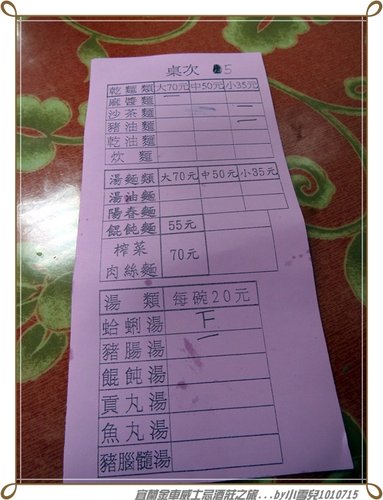 桌次 5
乾麵類 大70元 中50元 小35元
麻醬麵 一
沙茶麵 一 一
豬油麵 一
乾油麵
炊麵
湯麵類 大70元 中50元 小35元
湯油麵
陽春麵
餛飩麵 55元
榨菜肉絲麵 70元
湯類 每碗20元
蛤蜊湯 下
豬腸湯 一
餛飩湯
貢丸湯
魚丸湯
豬腦髓湯
宜蘭金車威士忌酒莊之旅...by小雪兒1010715